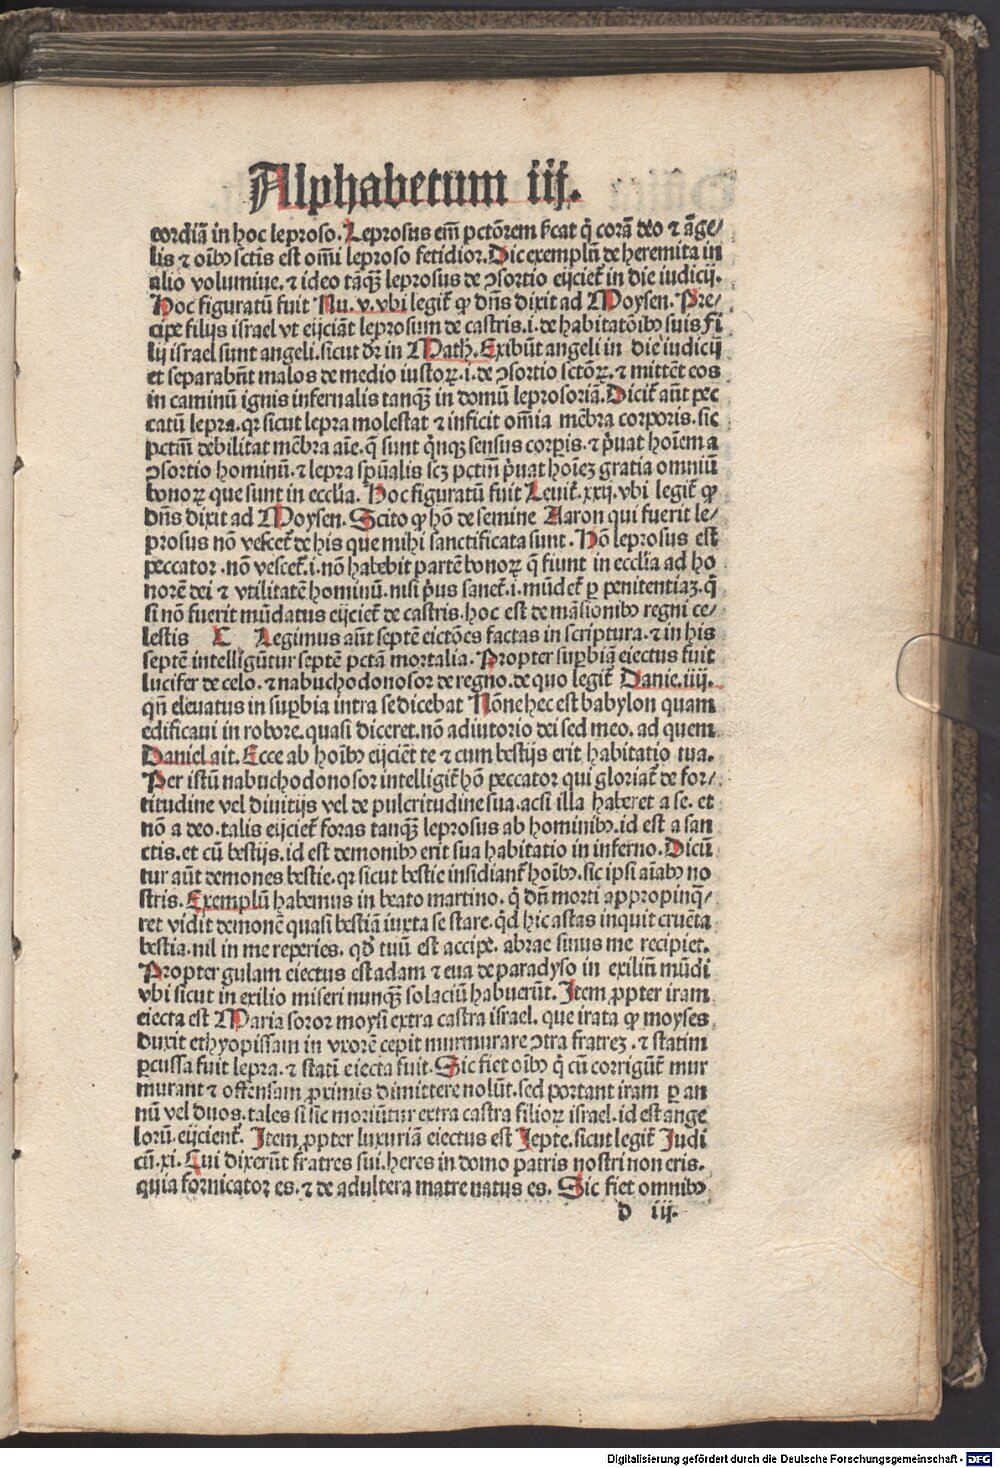 Alphabetum iij.
cordiã in hoc leproso. Leprosus em̃ pctõrem ſ̃cat q̃ corã deo ⁊ ãge/
lis ⁊ oĩbꝫ sctis est om̃i leproso fetidior. Dic exemplũ de heremita in
alio volumiue. ⁊ ideo tãq̃ leprosus de ↄsortio eijciet̃ in die iudicij.
Hoc figuratũ fuit Nu. v. vbi legit̃ ꝙ dñs dixit ad Moysen. Pre/
cipe filijs israel vt eijciãt leprosum de castris .i. de habitatõibꝫ suis Fi
lij israel sunt angeli. sicut dr̃ in Math. Exibũt angeli in die iudicij
et separabũt malos de medio iustoꝝ .i. de ↄsortio sctõꝝ. ⁊ mittẽt eos
in caminũ ignis infernalis tanq̃ in domũ leprosoriã. Dicit̃ aũt pec
catũ lepra. qꝛ sicut lepra molestat ⁊ inficit om̃ia mẽbra corporis. sic
pctm̃ debilitat mẽbra aĩe. q̃ sunt q̃nqꝫ sensus corꝑis. ⁊ p̃uat hoĩem a
ↄsortio hominũ. ⁊ lepra spũalis scꝫ pctm̃ p̃uat hoĩeꝫ gratia omniũ
bonoꝝ que sunt in ecclĩa. Hoc figuratũ fuit Leuit̃. xxij. vbi legit̃ ꝙ
dñs dixit ad Moysen. Scito ꝙ hõ de semine Aaron qui fuerit le/
prosus nõ vescet̃ de his que mihi sanctificata sunt. Hõ leprosus est
peccator. nõ vescet̃ .i. nõ habebit partẽ bonoꝝ q̃ fiunt in ecclĩa ad ho
norẽ dei ⁊ vtilitatẽ hominũ. nisi p̃us sanet̃ .i. mũdet̃ ꝑ penitentiaꝫ. q̃
si nõ fuerit mũdatus eijciet̃ de castris. hoc est de mãsionibꝫ regni ce/
lestis C Legimus aũt septẽ eictões factas in scriptura. ⁊ in his
septẽ intelligũtur septẽ pctã mortalia. Propter suꝑbiã eiectus fuit
lucifer de celo. ⁊ nabuchodonosor de regno. de quo legit̃ Danie. iiij.
qñ eleuatus in suꝑbia intra se dicebat Nõne hec est babylon quam
edificaui in robore. quasi diceret. nõ adiutorio dei sed meo. ad quem
Daniel ait. Ecce ab hoĩbꝫ eijciẽt te ⁊ cum bestijs erit habitatio tua.
Per istũ nabuchodonosor intelligit̃ hõ peccator qui gloriat̃ de for/
titudine vel diuitijs vel de pulcritudine sua. acsi illa haberet a se. et
nõ a deo. talis eijciet̃ foras tanq̃ leprosus ab hominibꝫ. id est a san
ctis. et cũ bestijs. id est demonibꝫ erit sua habitatio in inferno. Dicũ
tur aũt demones bestie. qꝛ sicut bestie insidiant̃ hoĩbꝫ. sic ipsi aĩabꝫ no
stris. Exemplũ habemus in beato martino. q̃ dñ morti appropinq̃/
ret vidit demonẽ quasi bestiã iuxta se stare. q̃d hic astas inquit cruẽta
bestia. nil in me reperies. qd̃ tuũ est accipe. abrae sinus me recipiet.
Propter gulam eiectus est adam ⁊ eua de paradyso in exiliũ mũdi
vbi sicut in exilio miseri nunq̃ solaciũ habuerũt. Item ꝓpter iram
eiecta est Maria soror moysi extra castra israel. que irata ꝙ moyses
duxit ethyopissam in vxorẽ cepit murmurare ↄtra fratreꝫ. ⁊ statim
ꝑcussa fuit lepra. ⁊ statĩ eiecta fuit. Sic fiet oĩbꝫ q̃ cũ corrigũt̃ mur
murant ⁊ offensam ꝓximis dimittere nolũt. sed portant iram ꝑ an
nũ vel duos. tales si sic moriũtur extra castra filioꝝ israel. id est ange
lorũ eijcient̃. Item ꝓpter luxuriã eiectus est Jepte. sicut legit̃ Judi
cũ. xi. Cui dixerũt fratres sui. heres in domo patris nostri non eris.
quia fornicator es. ⁊ de adultera matre natus es. Sic fiet omnibꝫ
d iij.
Digitalisierung gefördert durch die Deutsche Forschungsgemeinschaft - DFG